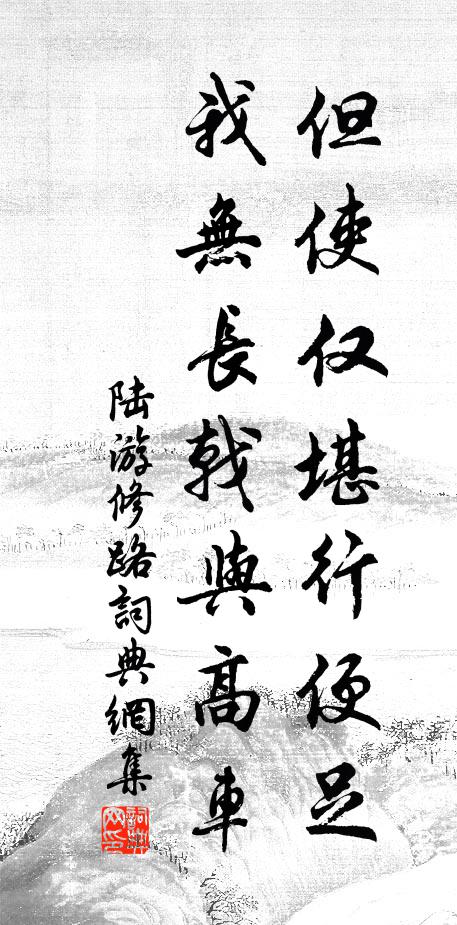 但使仅堪行便足
我無長戟與高車
陆游修路詞典網集